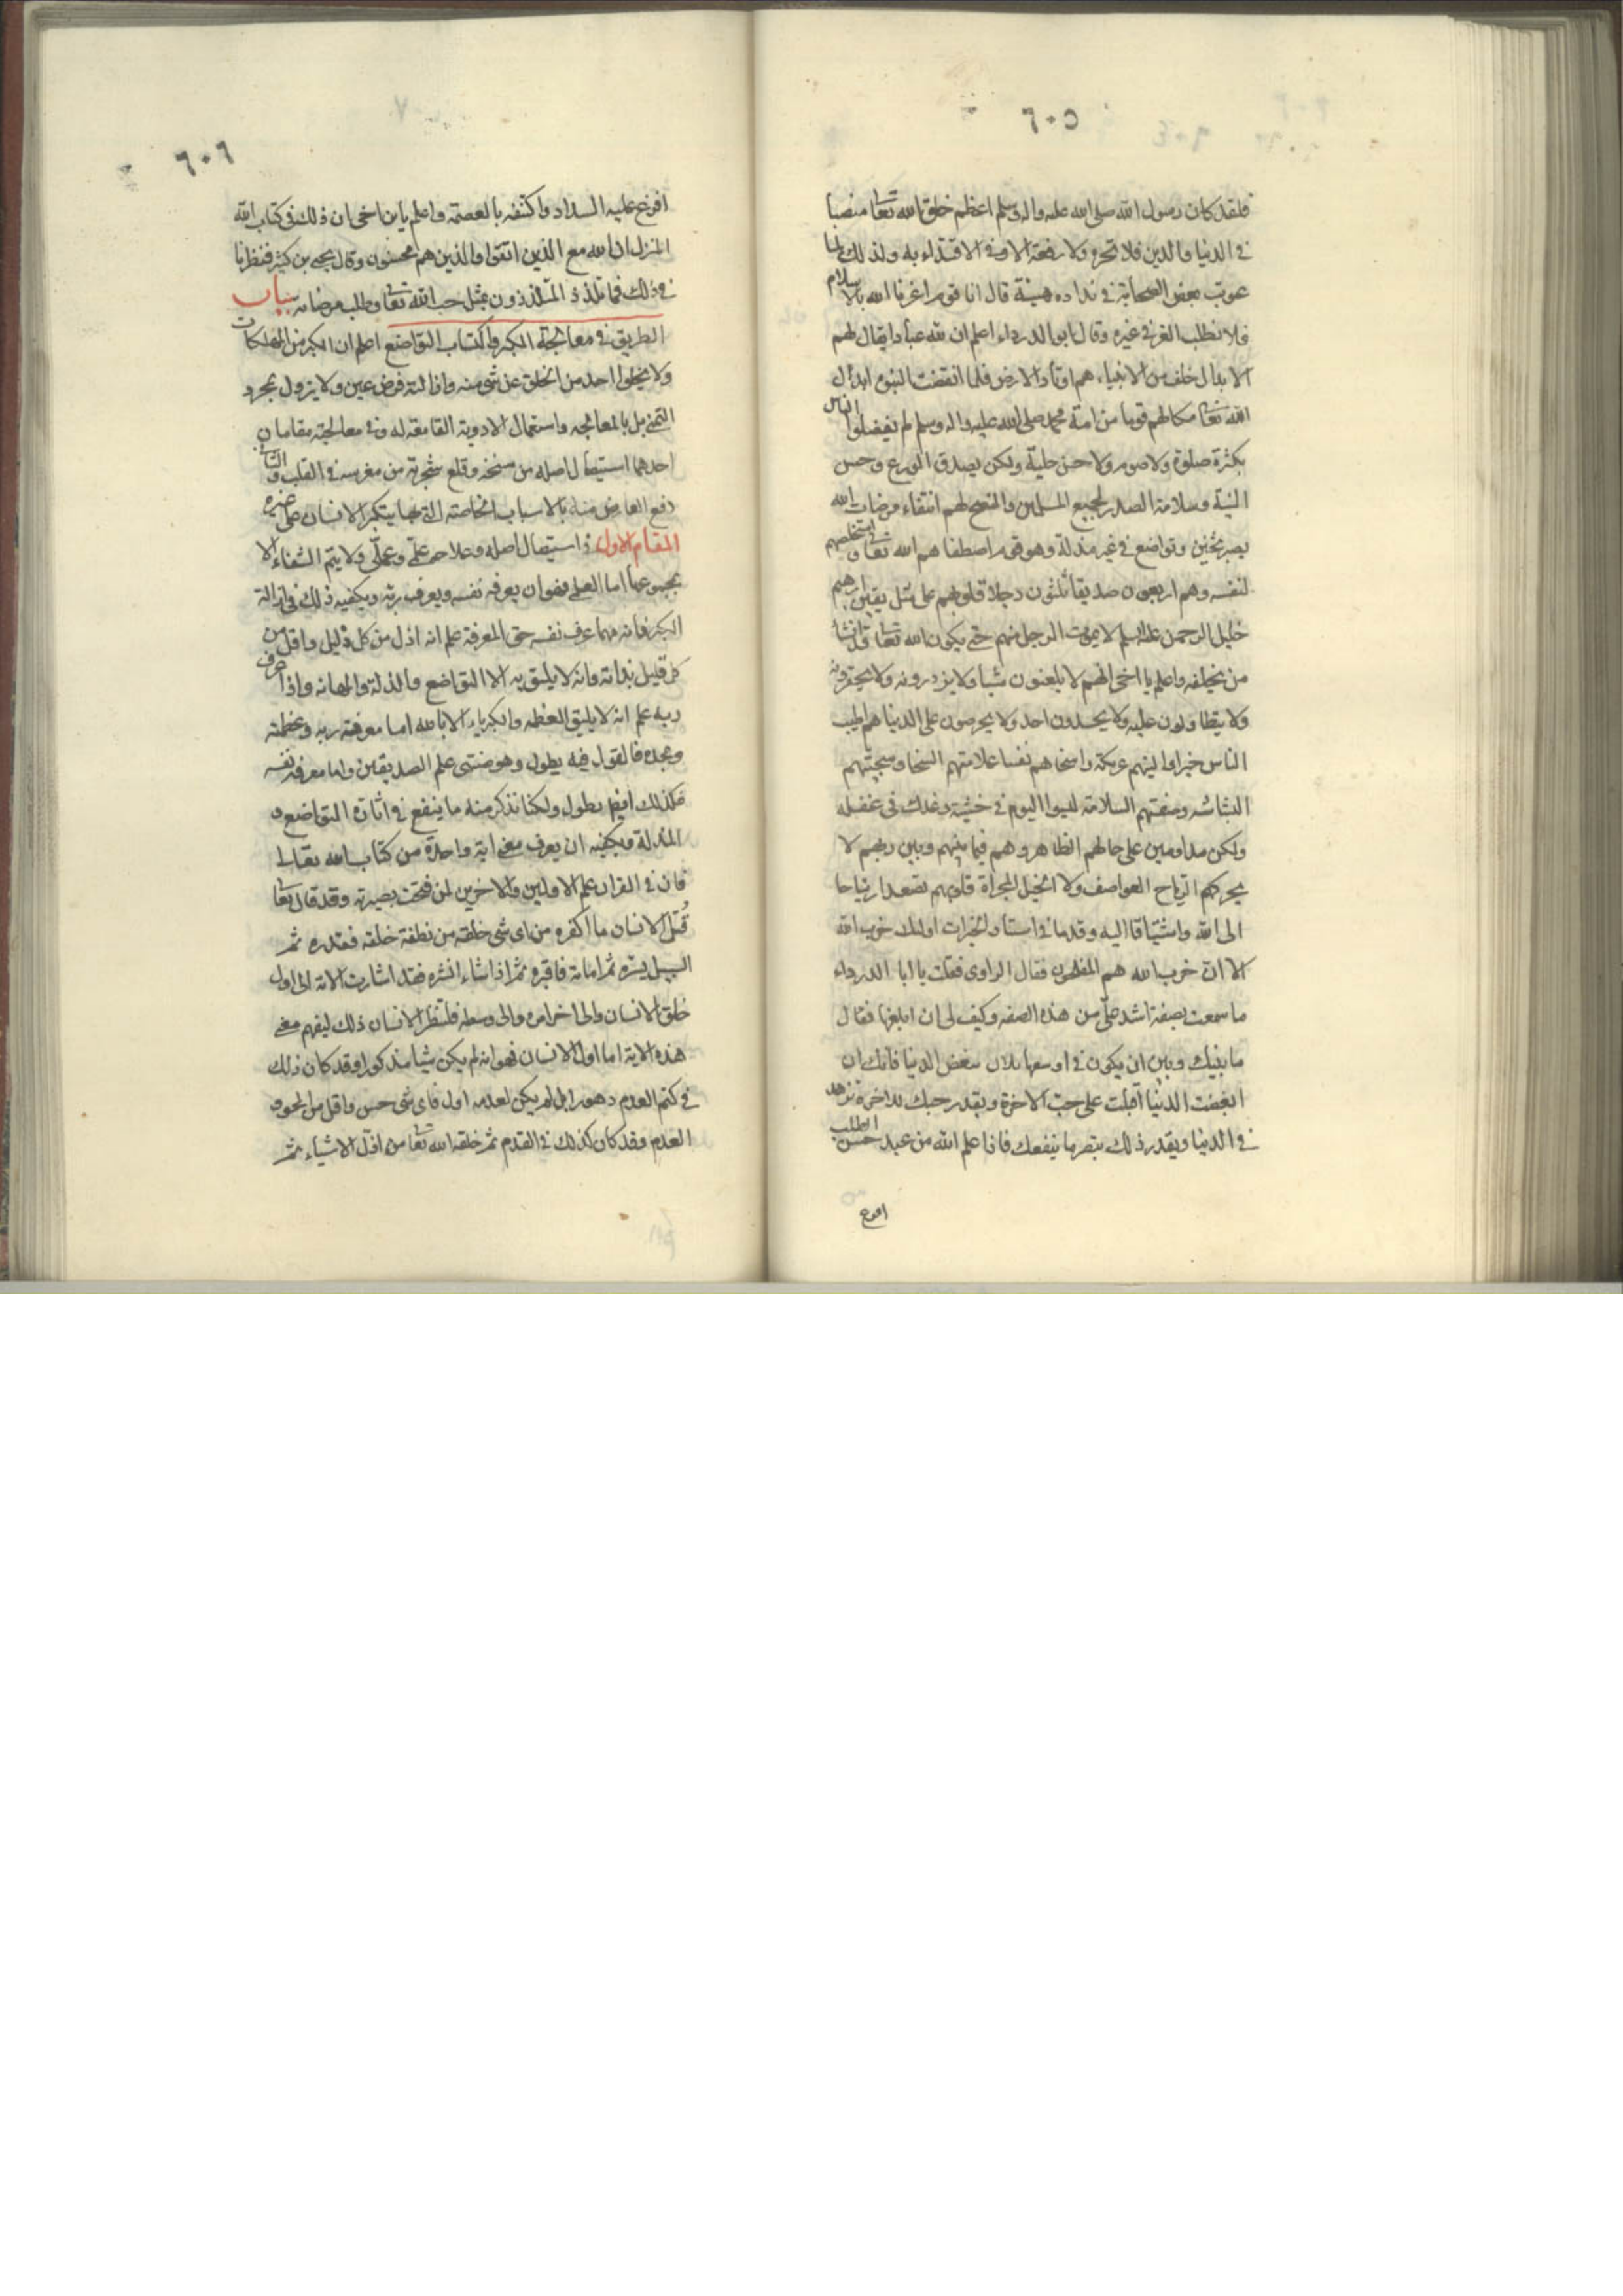 ٦٠٥
فلقد كان رسول الله صلى الله عليه واله وسلم اعظم خلق الله تعا منصبا
في الدنيا والدين فلا تحرو ولا رفعة الا وفي الاقتداء به ولذلك لما
عوتب بعض الصحابة في نداده هيئة قال انا قوم اعزنا الله بالاسلام
فلا نطلب العز في غيره وقال ابو الدرداء اعلم ان لله عبادا يقال لهم
الابدال خلف من الانبياء هم اوتاد الارض فلما انقضت النبوة ابدال
الله تعا مكانهم قوما من امة محمد صلى الله عليه واله وسلم لم يفضلوا الناس
بكثرة صلوة ولا صوم ولا حسن حلية ولكن بصدق الورع وحسن
النية وسلامة الصدر لجميع المسلمين والنصح لهم ابتغاء مرضات الله
بصبر تخين وتواضع في غير مذلة وهو قوم اصطفاهم الله تعا واستخلصهم
لنفسه وهم اربعون صديقا ثلثون رجلا قلوبهم على مثل يقين ابرهيم
خليل الرحمن عليه السلم لا يموت الرجل منهم حتى يكون الله تعا قد انشا
من يخلفه واعلم يا اخى انهم لا يلعنون شيا ولا يزدرونه ولا يحقرونه
ولا يتطاولون عليه ولا يحسدون احد ولا يحرصون على الدنيا هم اطيب
الناس خبرا والينهم عريكة واسخاهم نفسا علامتهم السخا وسجيتهم
البشاشه وصفتهم السلامة ليسوا اليوم في خشية وغدا فى غفله
ولكن مداومين على حالهم الظاهر وهم فيما بينهم وبين ربهم لا
يحركهم الرياح العواصف ولا الخيل المجراة قلوبهم تصعد ارتياحا
الى الله واشتياقا اليه وقدما في استباق الخيرات اولئك حزب الله
الا ان حزب الله هم المفلحون فقال الراوى فقلت يا ابا الدرداء
ما سمعت بصفة اشد على من هذه الصفه وكيف لى ان ابلغها فقال
ما بينك وبين ان يكون في اوسعها الا ان تبغض الدنيا فانك ان
ابغضت الدنيا اقبلت على حب الاخرة وبقدر حبك للاخرة تزهد
في الدنيا وبقدر ذلك تبصر ما ينفعك فاذا علم الله من عبد حسن الطلب
افرغ
٦٠٦
افرغ عليه السداد واكتنفه بالعصمة واعلم يا ابن اخى ان ذلك في كتاب الله
المنزل ان الله مع الذين اتقوا والذين هم محسنون وقال يحيى بن كثير فنظرنا
في ذلك فما تلذذ المتلذذون بمثل حب الله تعا وطلب مرضاته بيان
الطريق في معالجة الكبر واكتساب التواضع اعلم ان الكبر من المهلكات
ولا يخلوا احد من الخلق عن شى منه وازالته فرض عين ولا يزول بمجرد
التمنى بل بالمعالجه واستعمال الادوية القامعة له وفي معالجته مقامان
احدهما استيصال اصله من سنخه وقلع شجرته من مغرسه في القلب والثانى
دفع العارض منه بالاسباب الخاصة التي بها يتكبر الانسان على غيره
المقام الاول في استيصال اصله وعلاجه علمى وعملى ولا يتم الشفاء الا
بمجموعهما اما العلمى فهو ان يعرف نفسه ويعرف ربه ويكفيه ذلك في ازالة
الكبر فانه مهما عرف نفسه حق المعرفة علم انه اذل من كل ذليل واقل من
كل قليل بذاته وانه لا يليق به الا التواضع والذلة والمهانه واذا عرف
ربه علم انه لا يليق العظمه والكبرياء الا بالله اما معرفته ربه وعظمته
ومجده فالقول فيه يطول وهو منتهى علم الصديقين واما معرفة نفسه
فكذلك ايضا يطول ولكنا نذكر منه ما ينفع في اثارة التواضع و
المذلة ويكفيه ان يعرف معنى اية واحدة من كتاب الله تعالى
فان في القران علم الاولين والاخرين لمن فتحت بصيرته وقد قال تعا
قتل الانسان ما اكفره من اى شى خلقه من نطفة خلقه فقدره ثم
السبيل يسره ثم اماته فاقبره ثم اذا شاء انشره فقد اشارت الاية الى اول
خلق الانسان والى اخر امره والى وسطه فلينظر الانسان ذلك ليفهم معنى
هذه الاية اما اول الانسان فهو انه لم يكن شيا مذكورا وقد كان ذلك
في كتم العدم دهورا بل لم يكن لعدمه اول فاى شى اخس واقل من المحو و
العدم وقد كان كذلك في القدم ثم خلقه الله تعا من اذل الاشياء ثم